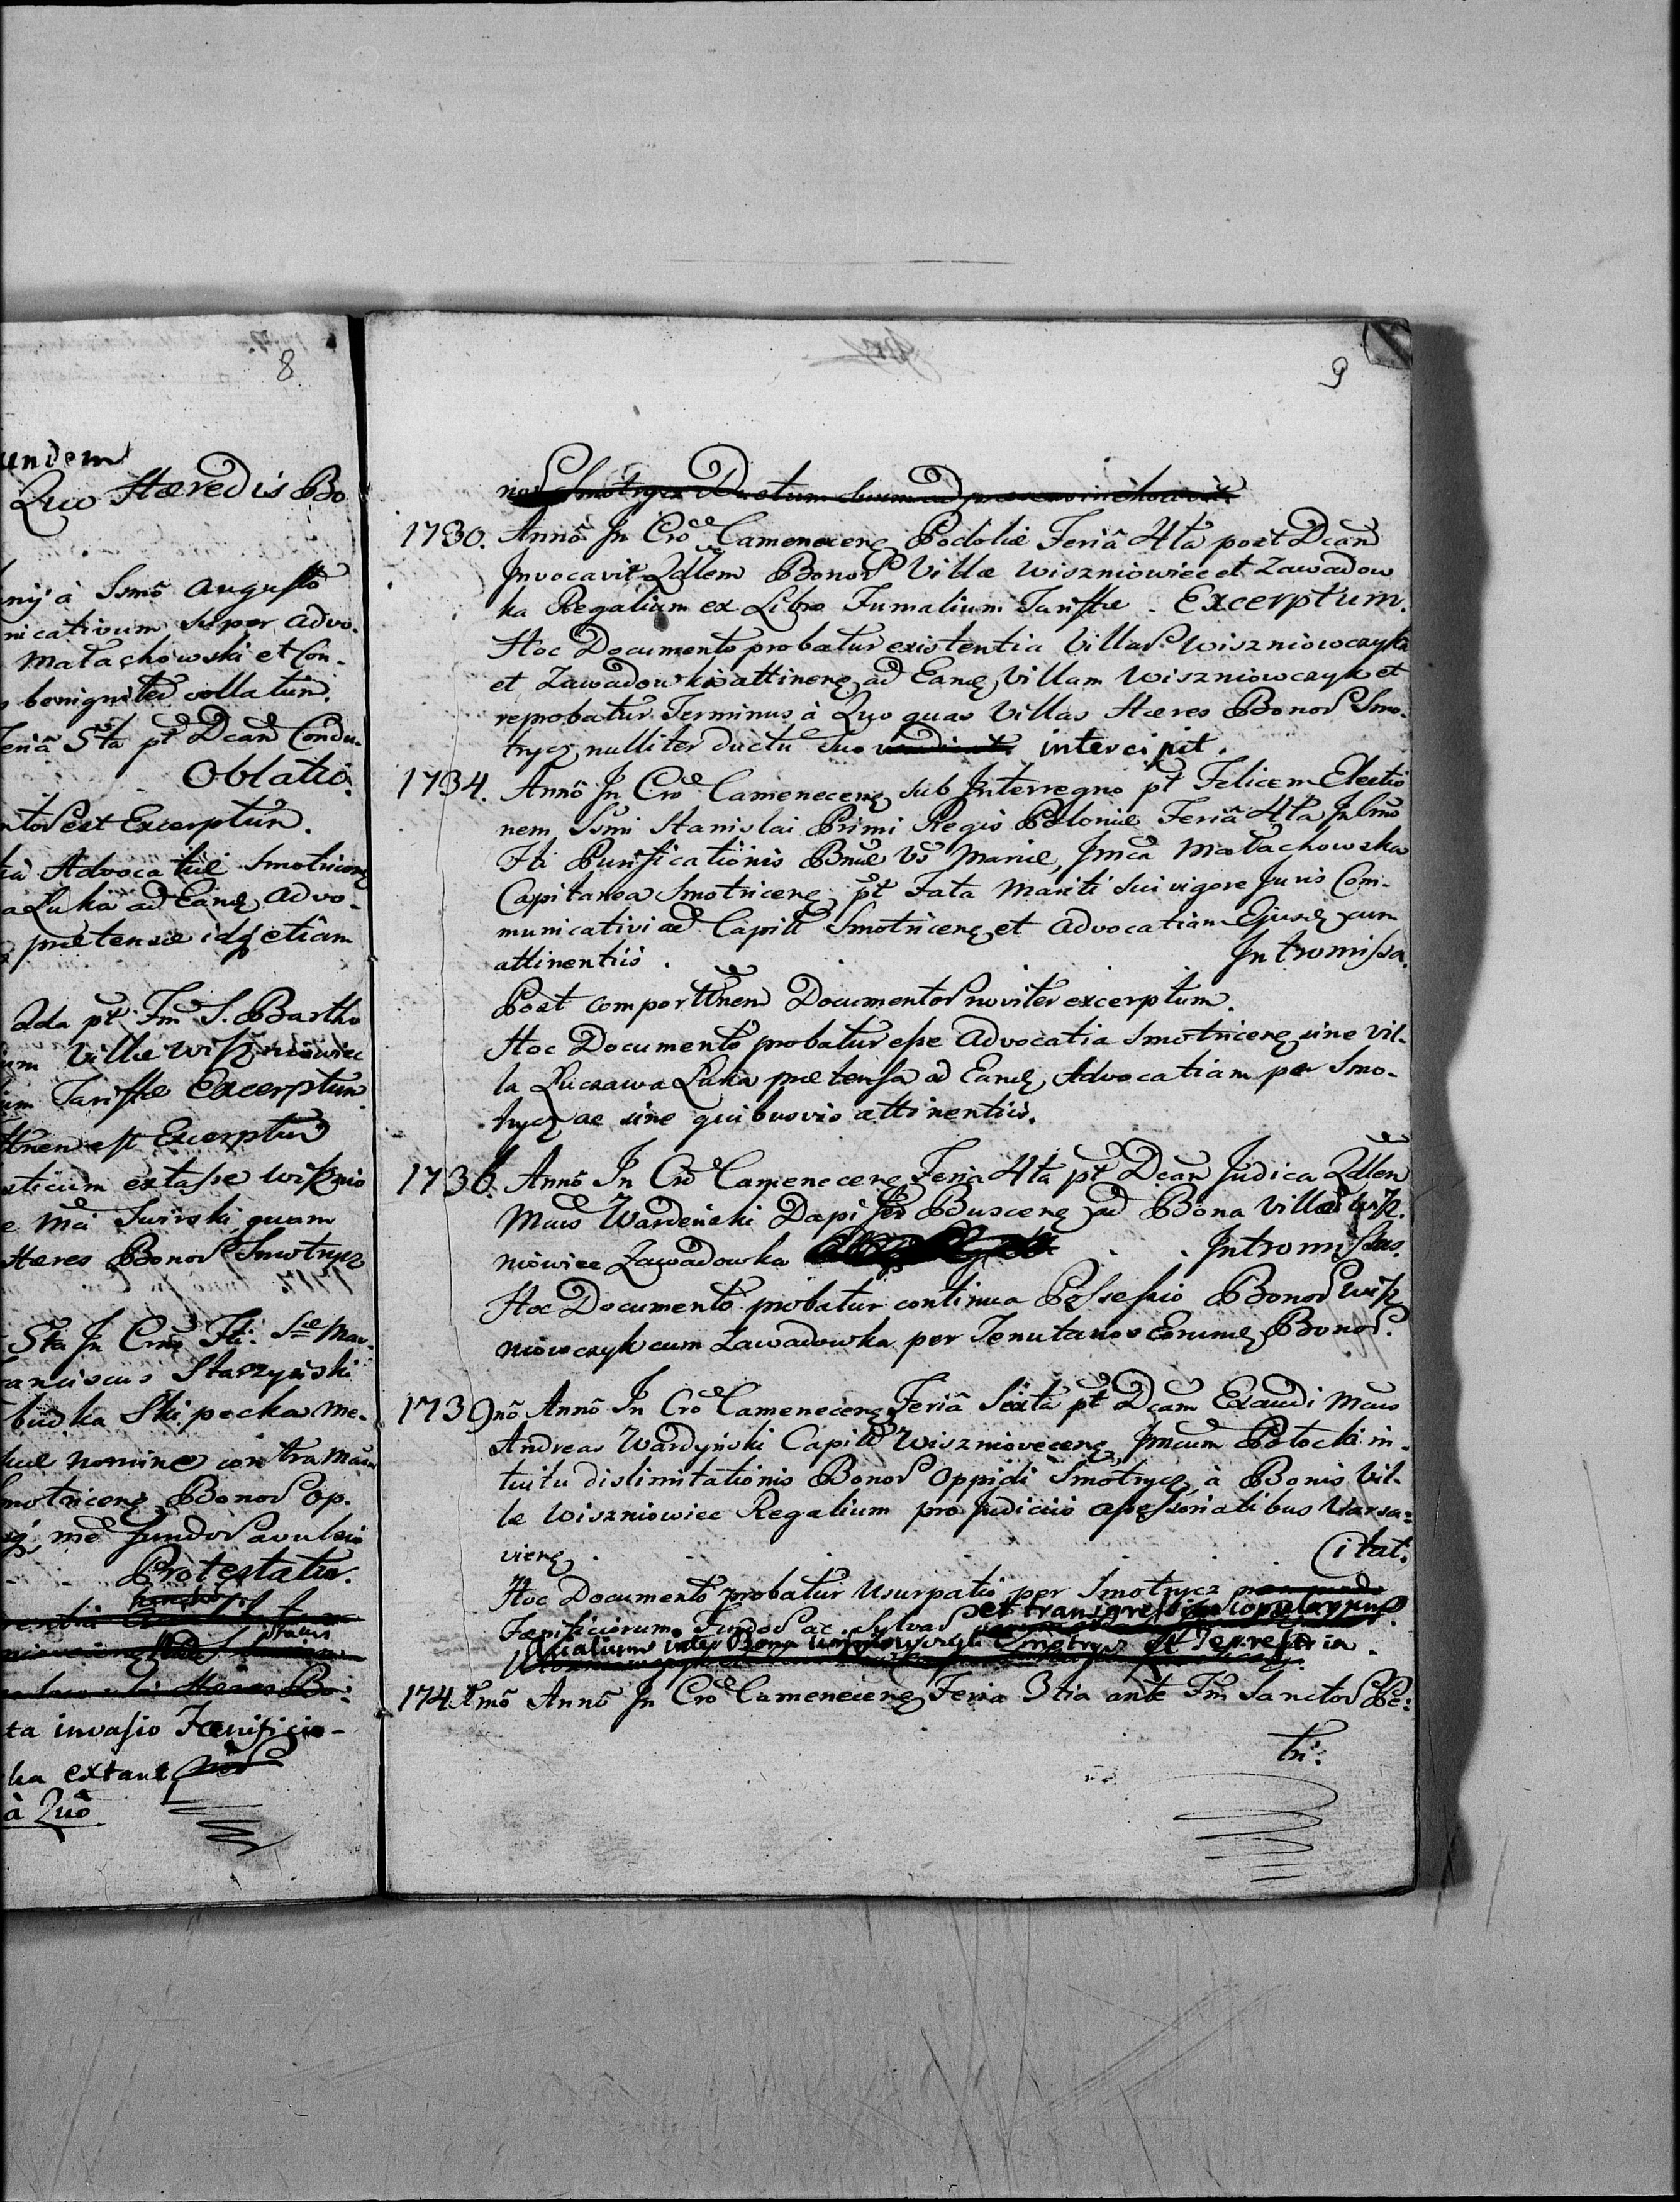 8
undem
Quo Hæredis Bo
nij à Ssmô Augustô
nicativum super Advo-
Małachowski et Con-
benigniter collatum.
Feriâ 5ta pt Dcam Condu-
Oblatio.
est Excerptum.
Advocatiæ Smotricens
Luka ad Eand Advo-
prætensæ idq etiam
2da pt Fm S. Bartho
Villæ Wiszniowiec
Tariffæ Excerptum
est Excerptum
sticum extasse Wisznio
Swirski quam
Hæres Bonor Smotrycz
5ta In Crno Fti. Scæ Mar-
anciscus Starzyński
budka Skipecka me-
nomine contra Mcum
motricens Bonor Op-
me fundor avulsio
Protestatur.
ta invasio Fænificio-
ka extant
à Quô
9
nor Smotrycz Ductum suum
1730. Annô In Crô Camenecens Podoliæ Feriâ 4ta post Dcam
Invocavit Qdlem Bonor Villæ Wiszniowiec et Zawadow
ka Regalium ex Libro Fumalium Tariffæ. Excerptum.
Hoc Documento probatur existentia Villar Wiszniowczyk
et Zawadowka attinens ad Eand Villam Wiszniowczyk et
reprobatur Terminus à Quo quas Villas Hæres Bonor Smo-
trycz nulliter ductu suo intercipit.
1734. Annô In Crô Camenecens sub Interregno pt Felicem Electio
nem Ssmi Stanislai Primi Regis Poloniæ Feriâ 4ta In Crno
Fti Purificationis Bmæ Vs Mariæ, Jmca Małachowska
Capitanea Smotricens pt Fata Mariti sui vigore Juris Com-
municativi ad Capitt Smotricens et Advocatiam Ejusd cum
attinentiis. Intromissa.
Post comporttnem Documentor noviter excerptum.
Hoc Documentô probatur esse Advocatia Smotricens sine Vil-
la Luczawa Luka prætensa ad Eand Advocatiam per Smo-
trycz ac sine quibusvis attinentiis.
1736. Annô In Crô Camenecens Feria 4ta pt Dcam Judica Qdlem
Mcus Wardeński Dapifer Buscens ad Bona Villar Wisz-
niowiec Zawadowka Intromissus.
Hoc Documentô probatur continua Possessio Bonor Wisz
niowczyk cum Zawadowka per Tenutarios Eorumd Bonor.
1739nô Annô In Crô Camenecens Feriâ Sexta pt Dcam Exaudi Mcus
Andreas Wardyński Capitt Wisznioviecens Jmcum Potocki in-
tuitu dislimitationis Bonor Oppidi Smotrycz à Bonis Vil-
læ Wiszniowiec Regalium pro Judicio assessorialibus Varsa-
viens Citat.
Hoc Documentô probatur Usurpatio per Smotrycz
Fænificiorum, Fundor ac Sylvar et transgressio
inter Bona Wiszniowczyk Smotrycz et Terrestria.
1741mô Annô In Crô Camenecens Feria 3tia ante Fm Sanctor Pe:
tri: